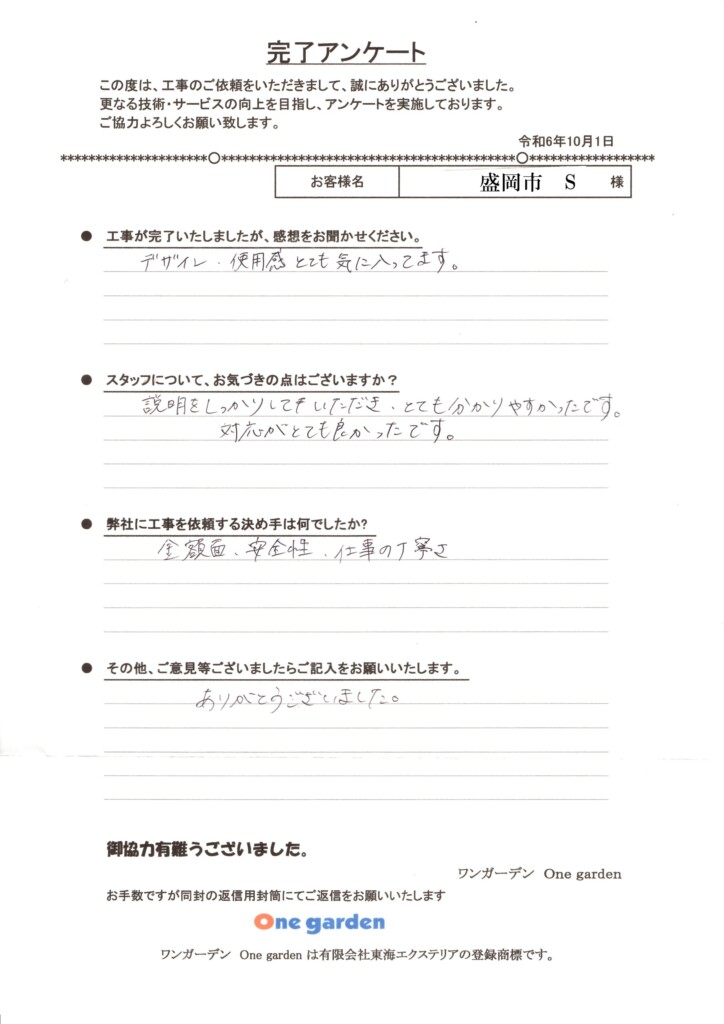 完了アンケート
この度は、工事のご依頼をいただきまして、誠にありがとうございました。
更なる技術・サービスの向上を目指し、アンケートを実施しております。
ご協力よろしくお願い致します。
令和6年10月1日
お客様名 盛岡市 S 様
● 工事が完了いたしましたが、感想をお聞かせください。
デザイン・使用感とても気に入ってます。
● スタッフについて、お気づきの点はございますか？
説明をしっかりしていただき、とても分かりやすかったです。
対応がとても良かったです。
● 弊社に工事を依頼する決め手は何でしたか?
金額面、安全性、仕事の丁寧さ
● その他、ご意見等ございましたらご記入をお願いいたします。
ありがとうございました。
御協力有難うございました。
ワンガーデン One garden
お手数ですが同封の返信用封筒にてご返信をお願いいたします
One garden
ワンガーデン One garden は有限会社東海エクステリアの登録商標です。